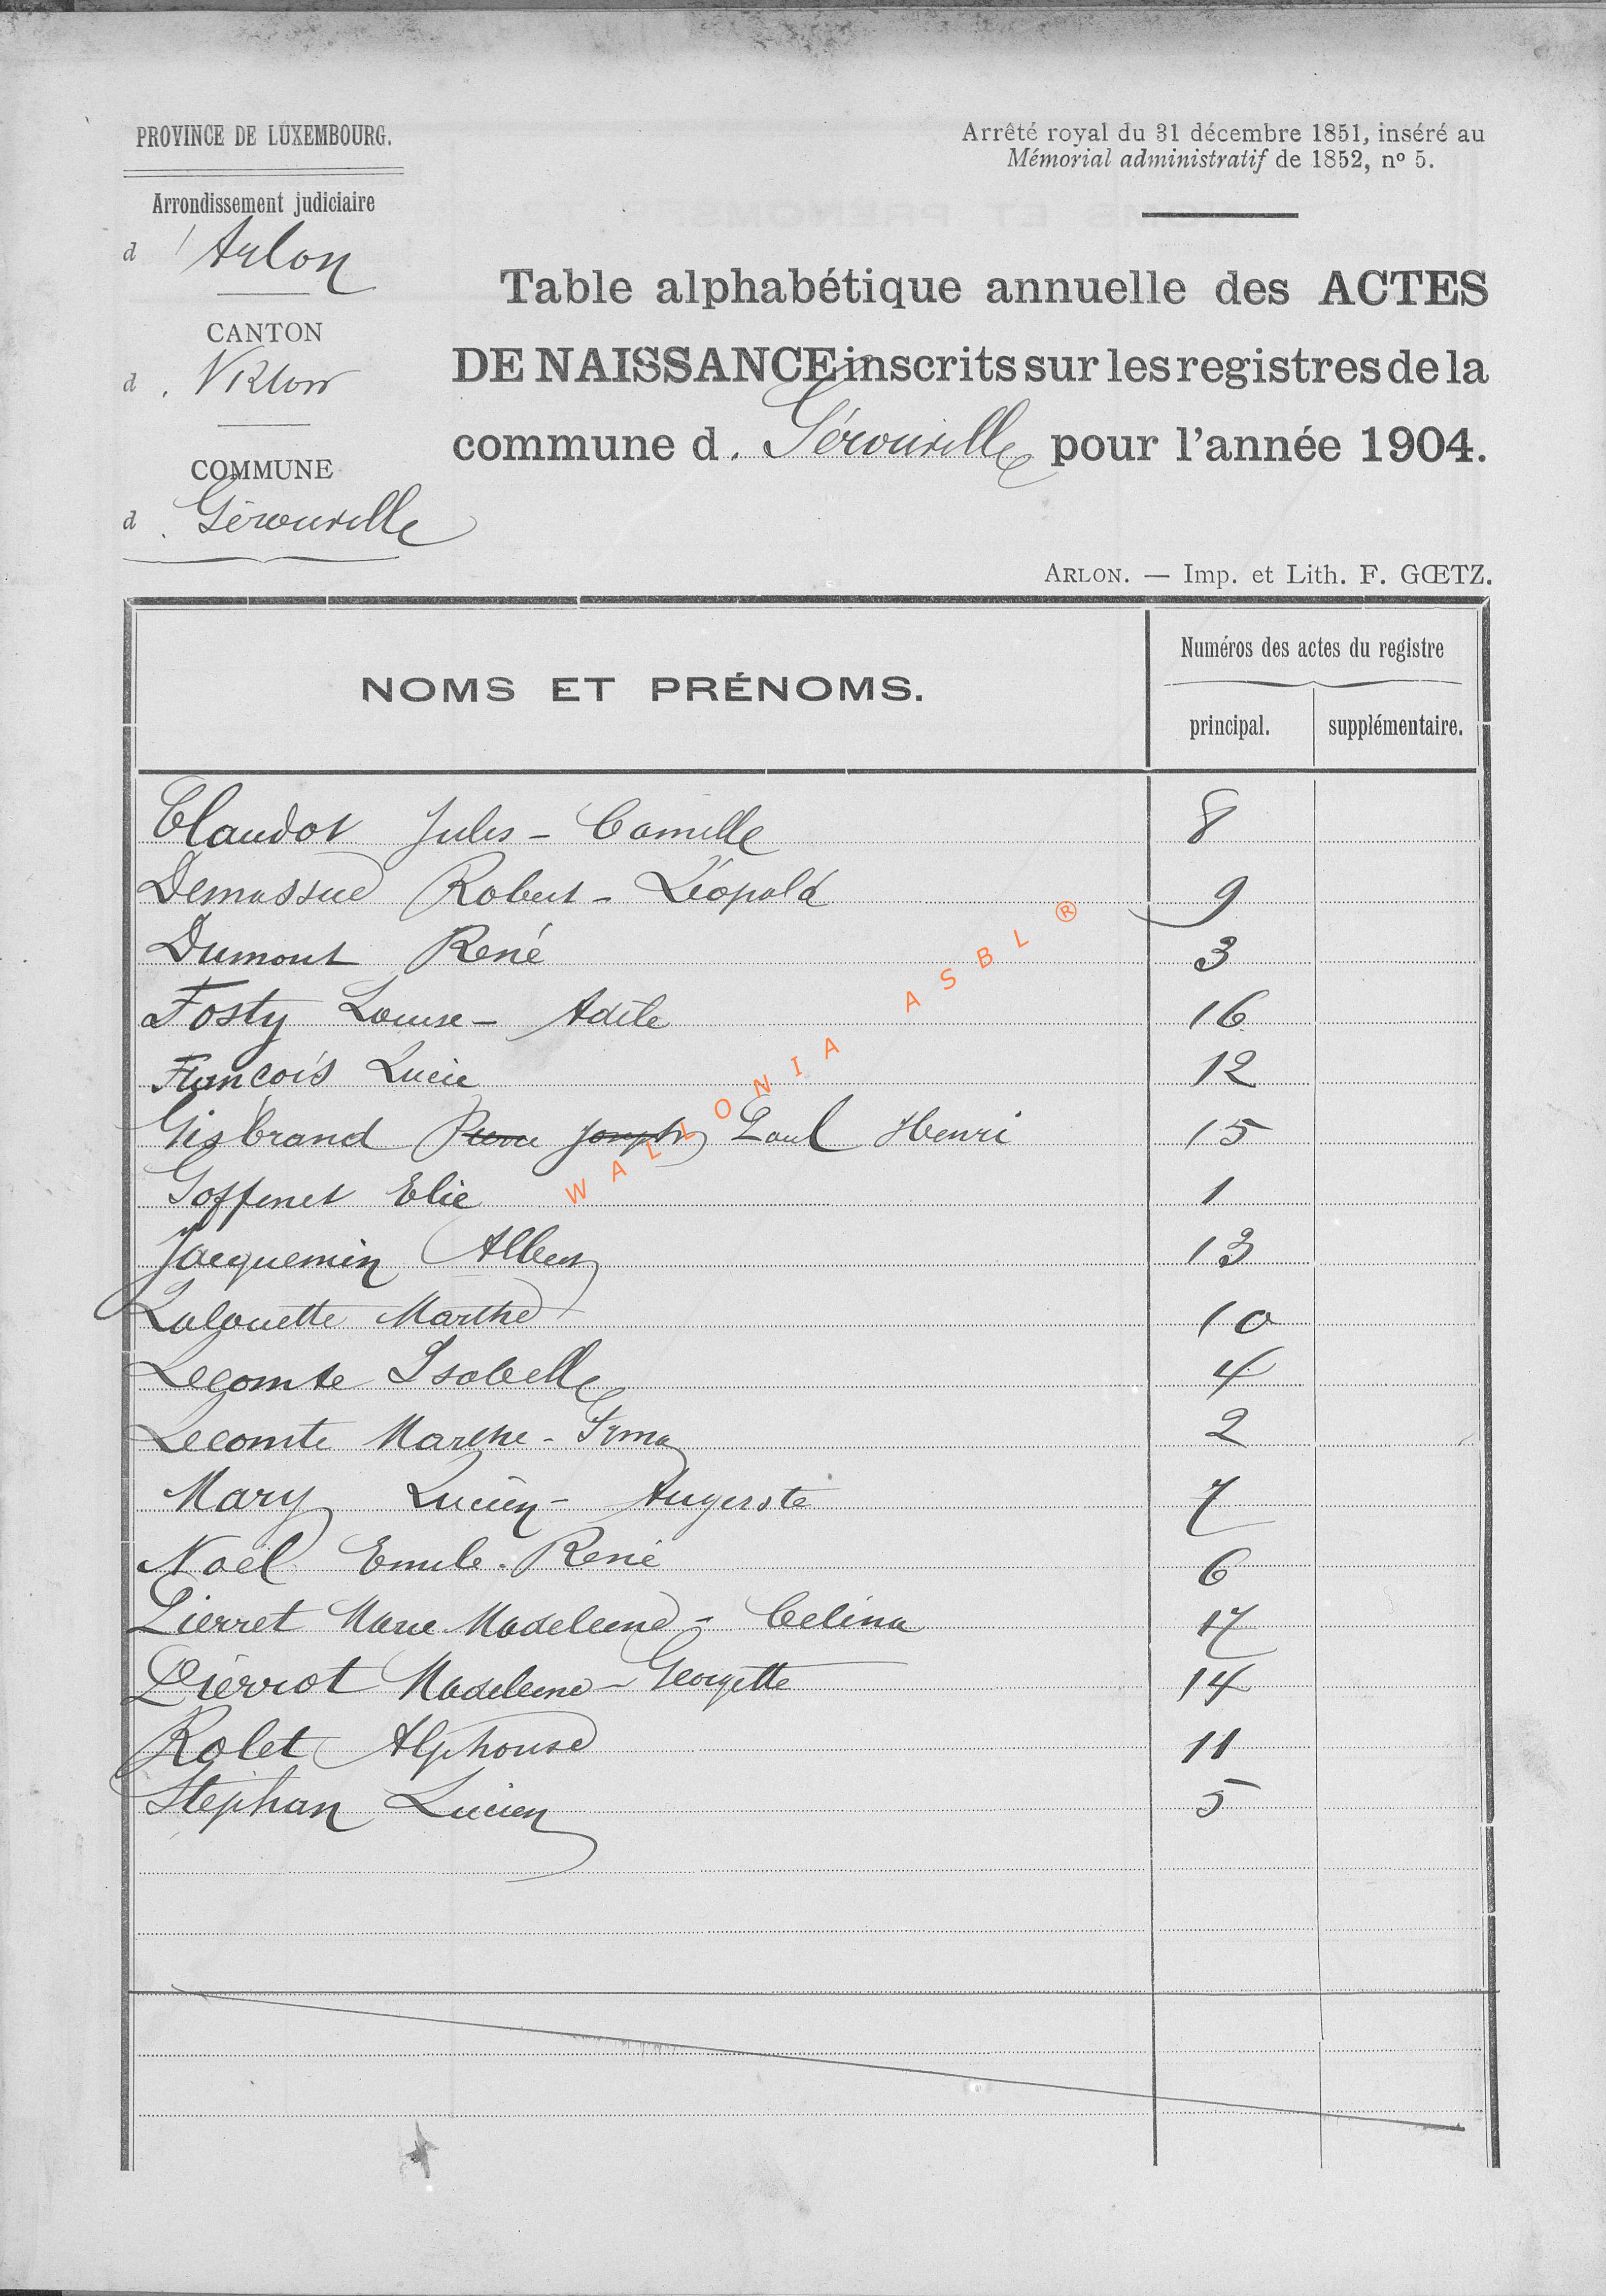 PROVINCE DE LUXEMBOURG.
Arrondissement judiciaire
d'Arlon
CANTON
d. Virton
COMMUNE
d. Gérouville
Arrêté royal du 31 décembre 1851, inséré au
Mémorial administratif de 1852, nº 5.
Table alphabétique annuelle des ACTES
DE NAISSANCE inscrits sur les registres de la
commune d. Gérouville pour l'année 1904.
ARLON. — Imp. et Lith. F. GŒTZ.
NOMS ET PRÉNOMS.
Numéros des actes du registre
principal. supplémentaire.
Claudot Jules - Camille 8
Demassue Robert - Léopold 9
Dumont René 3
Fosty Louise - Adèle 16
François Lucie 12
Gisbrand Pierre Joseph Paul Henri 15
Goffinet Elie 1
Jacquemin Albert 13
Lalouette Marthe 10
Lecomte Isabelle 4
Lecomte Marthe - Irma 2
Mary Lucien - Auguste 7
Noël Emile - René 6
Pierret Marie Madeleine - Celina 17
Pierrot Madeleine - Georgette 14
Rolet Alphonse 11
Stephan Lucien 5
WALLONIA ASBL ®